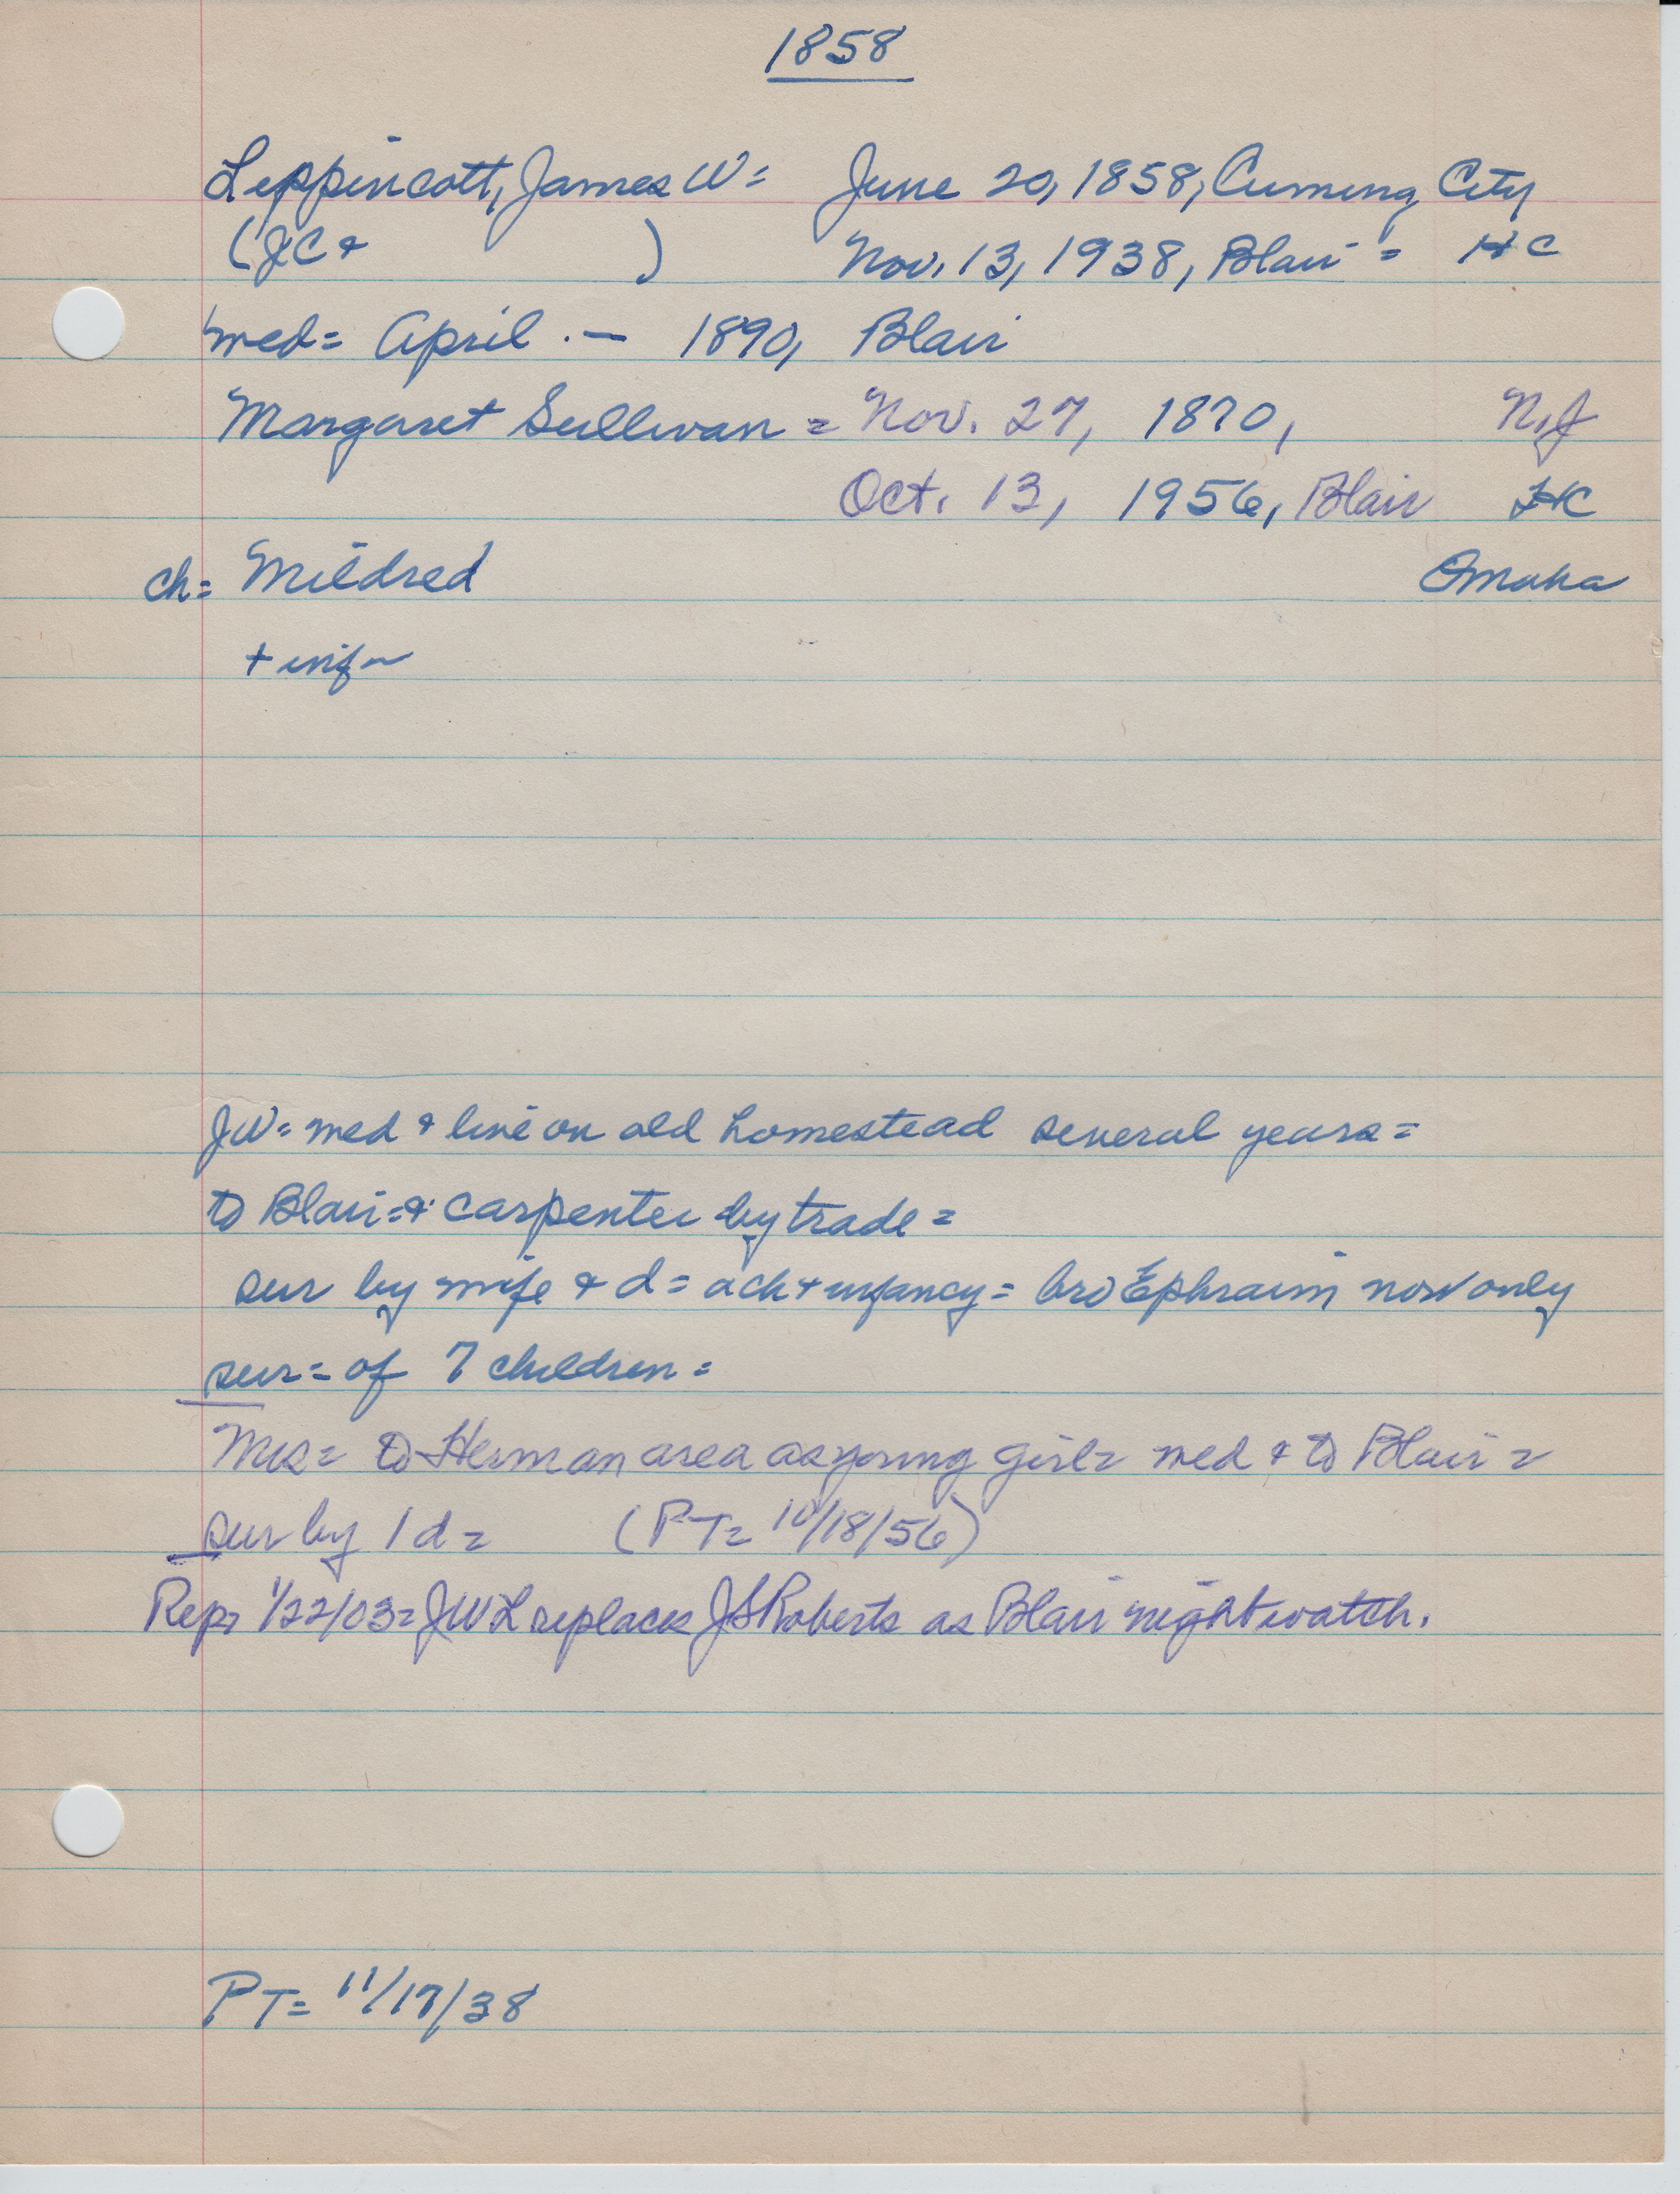 1858
Lippincott, James W = June 20, 1858, Cuming City
(JC + ) Nov. 13, 1938, Blair = HC
med = April . — 1890, Blair
Margaret Sullivan = Nov. 27, 1870, NJ
Oct. 13, 1956, Blair HC
ch = Mildred Omaha
+ inf~
JW = med + live on old homestead several years =
to Blair = + carpenter by trade =
sur by wife + d = a ch + infancy = bro Ephraim now only
sur = of 7 children =
Mrs = to Herman area as young girl = med + to Blair =
sur by 1 d = (PT = 10/18/56)
Rep = 1/22/03 = JWL replaces JS Roberts as Blair nightwatch.
PT = 11/17/38